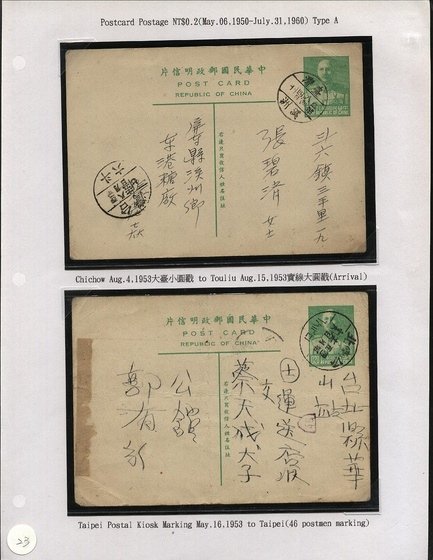 Postcard Postage NT$0.2(May.06.1950-July.31,1960) Type A
片信明政郵國民華中
POST CARD
REPUBLIC OF CHINA
斗六鎮三平里一九
張碧清 女士
右邊片寫收信人姓名住址
屏東縣溪州鄉
東港糖廠
六斗
Chichow Aug.4.1953大臺小圓戳 to Touliu Aug.15,1953實線大圓戳(Arrival)
片信明政郵國民華中
POST CARD
REPUBLIC OF CHINA
台北縣華
山站
運送股
交
蔡天成
右邊片寫收信人姓名住址
公館
Taipei Postal Kiosk Marking May.16.1953 to Taipei(46 postmen marking)
23